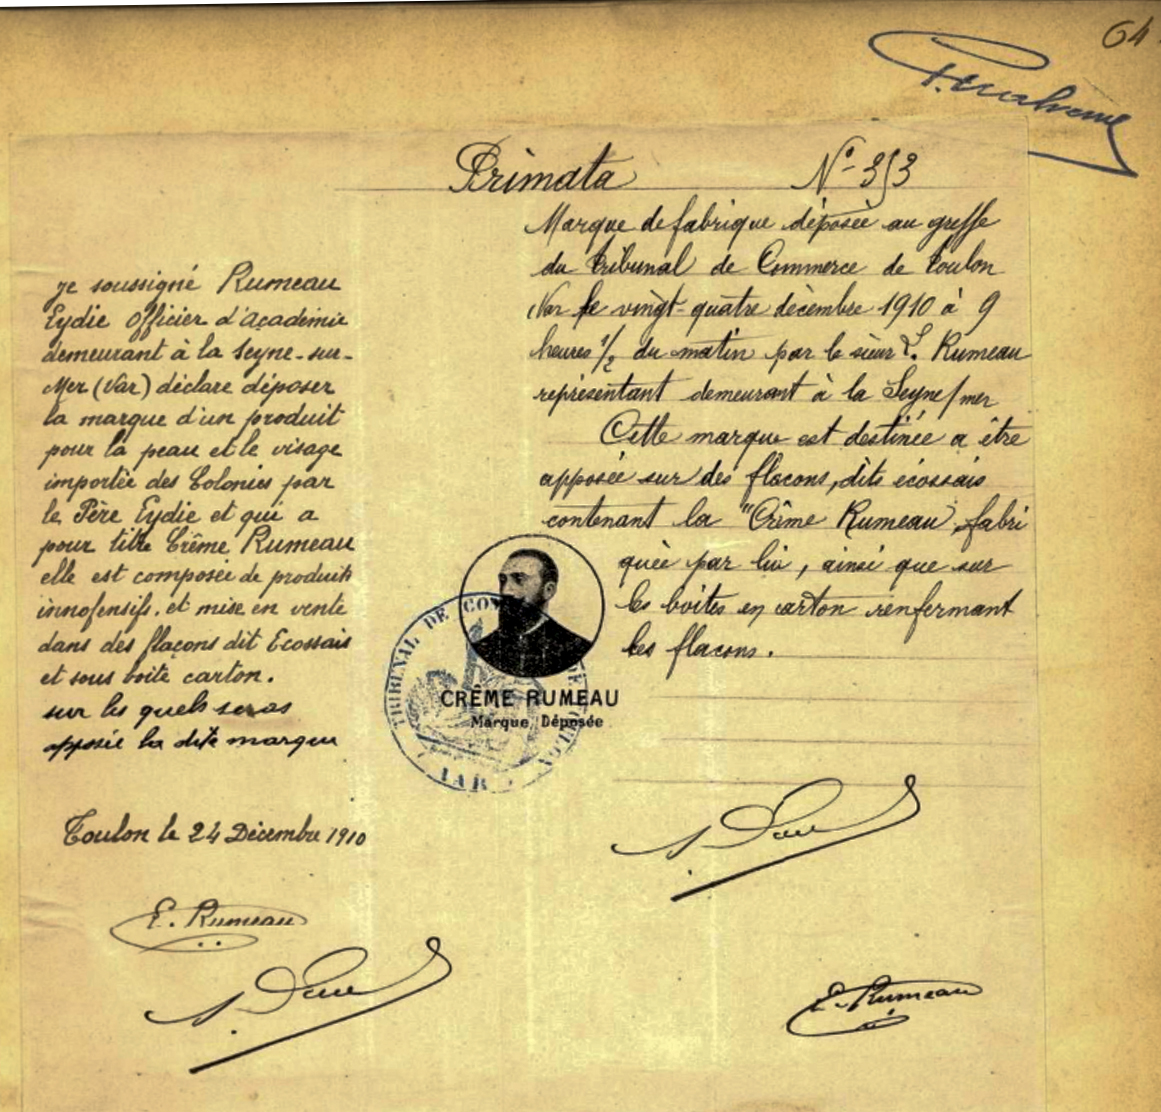 64
Primata N° 353
je soussigné Rumeau
Eydie officier d'Académie
demeurant à la Seyne-sur-
Mer (Var) déclare déposer
la marque d'un produit
pour la peau et le visage
importée des Colonies par
le Père Eydie et qui a
pour titre Crême Rumeau
elle est composée de produits
innofensifs. et mise en vente
dans des flaçons dit Ecossais
et sous boite carton.
sur les quels seras
apposée la dite marque
Toulon le 24 Décembre 1910
E. Rumeau
Marque de fabrique déposée au greffe
du tribunal de Commerce de Toulon
Var le vingt-quatre décembre 1910 à 9
heures 1/2 du matin par le sieur E. Rumeau
représentant demeurant à la Seyne/mer
Cette marque est destinée a être
apposée sur des flacons, dits écossais
contenant la "Crême Rumeau, fabri
quée par lui, ainsi que sur
les boites en carton renfermant
les flacons.
TRIBUNAL DE COM DE TOULON
VAR
CRÊME RUMEAU
Marque Déposée
E. Rumeau